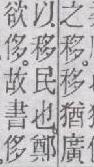 之移移猶廣
以移民也鄭
欲侈故書侈